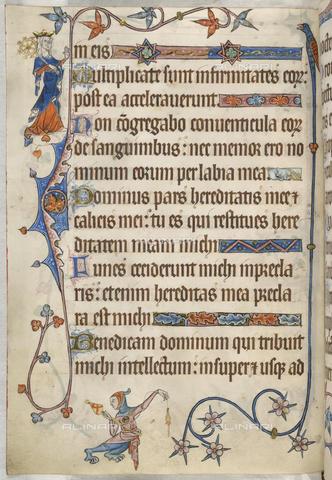 m eis.
Multiplicate sunt infirmitates eor̄:
post ea accelaverunt
Non cōgregabo conventicula eor̄
de sanguinibus: nec memor ero no
minum eorum per labia mea
Dominus pars hereditatis mee ⁊
calicis mei: tu es qui restitues here
ditatem meam michi
Funes ceciderunt michi in precla
ris: etenim hereditas mea precla
ra est michi
Benedicam dominum qui tribuit
michi intellectum: insuper ⁊ usq; ad
ALINARI
ALINARI